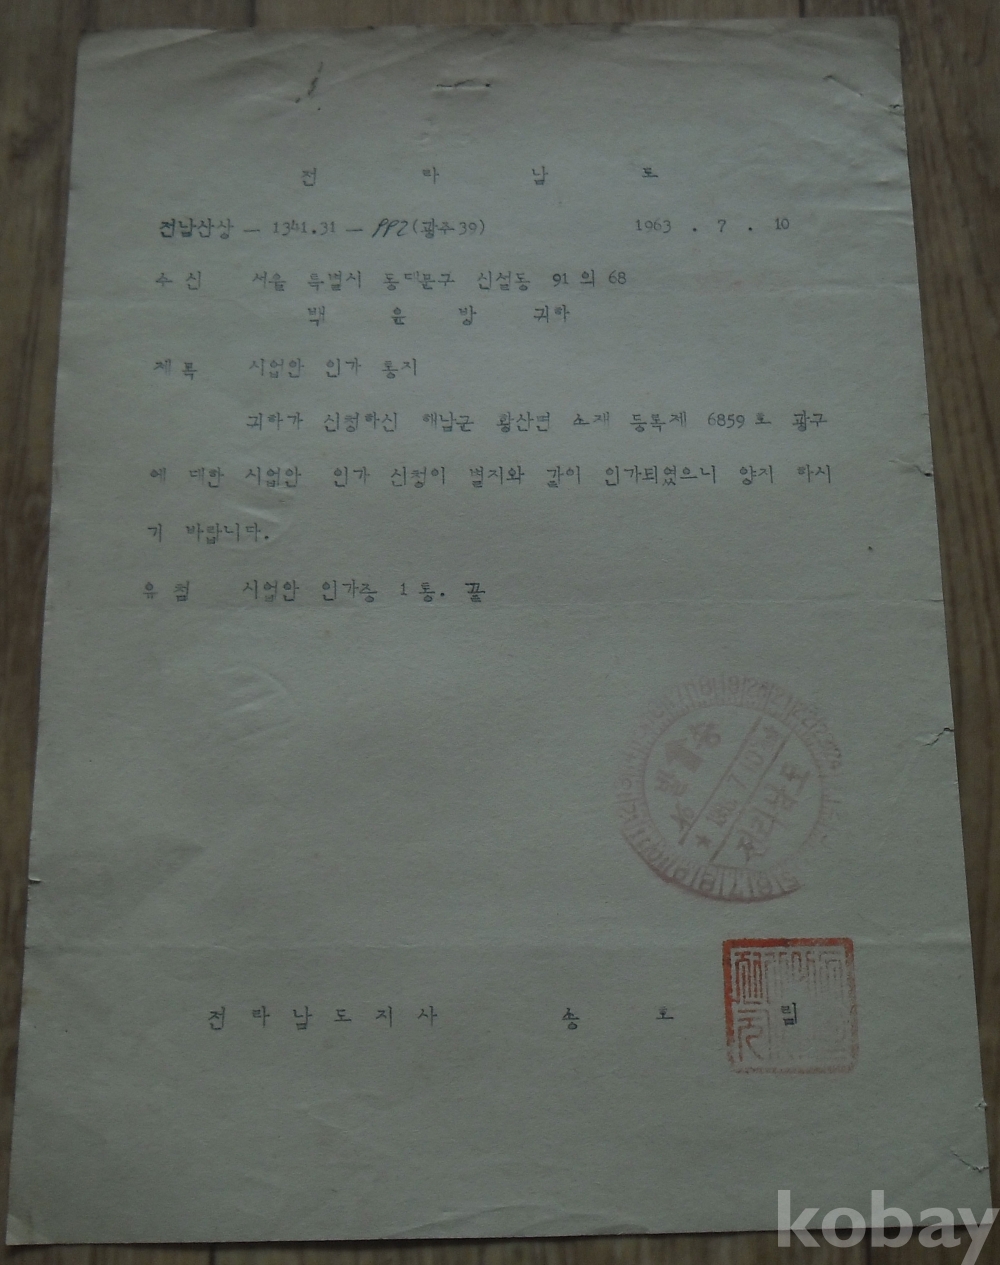 전 라 남 도
전남산상 — 1341.31 — 992(광주39) 1963 . 7 . 10
수 신 서울 특별시 동대문구 신설동 91 의 68
백 윤 방 귀하
제 목 시업안 인가 통지
귀하가 신청하신 해남군 황산면 소재 등록제 6859 호 광구
에 대한 시업안 인가 신청이 별지와 같이 인가되였으니 양지 하시
기 바랍니다.
유 첨 시업안 인가증 1 통. 끝
발송
전라남도
전 라 남 도 지 사 송 호 림
kobay